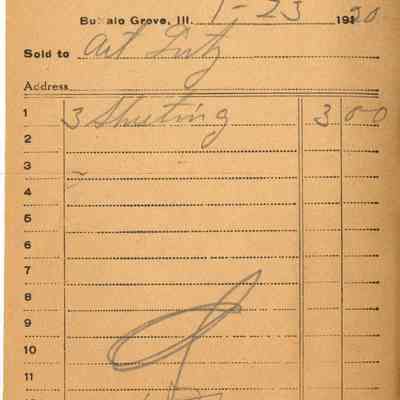 Buffalo Grove, Ill. 1-23 1920
Sold to Art Lutz
Address
1 3 Sheeting 3 00
2
3
4
5
6
7
8
9
10
11